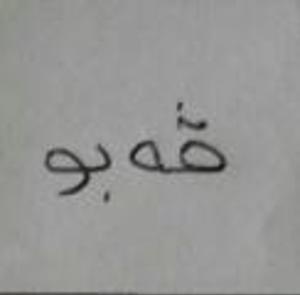 ڤەبو